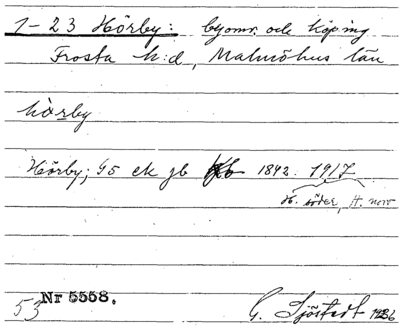 1-23 Hörby: byomr. och köping
Frosta h:d, Malmöhus län
hörby
Hörby; 45 ek jb 1842. 1917
H. söder, H. norr
53 Nr 5558.
G. Sjöstedt 1936